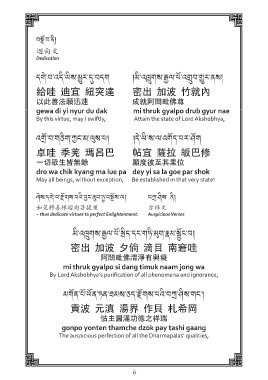 བསྔོ་བ་ནི།
迴向文
Dedication
དགེ་བ་འདི་ཡིས་མྱུར་དུ་བདག
給哇 迪宜 紐突達
以此善法願迅速
gewa di yi nyur du dak
By this virtue, may I swiftly,
།མི་འཁྲུགས་རྒྱལ་པོ་འགྲུབ་གྱུར་ནས།
密出 加波 竹就內
成就阿閦毗佛尊
mi thruk gyalpo drub gyur nae
Attain the state of Lord Akshobhya,
འགྲོ་བ་གཅིག་ཀྱང་མ་ལུས་པ།
卓哇 季羌 瑪呂巴
一切眾生皆無餘
dro wa chik kyang ma lue pa
May all beings, without exception,
།དེ་ཡི་ས་ལ་འགོད་པར་ཤོག
帖宜 薩拉 皈巴修
願度彼至其果位
dey yi sa la goe par shok
Be established in that very state!
ཞེས་དགེ་བ་རྫོགས་པའི་བྱང་ཆུབ་ཏུ་བསྔོས་ལ།
如是將善根迴向菩提果
– thus dedicate virtues to perfect Enlightenment.
བཀྲ་ཤིས་ནི།
吉祥文
Auspicious Verses
མི་འཁྲུགས་རྒྱལ་པོ་སྲིད་དང་གཏི་མུག་རྣམ་སྦྱོང་བ།
密出 加波 夕倘 滴目 南窘哇
阿閦毗佛清淨有與癡
mi thruk gyalpo si dang timuk naam jong wa
By Lord Akshobhya's purification of all phenomena and ignorance,
མགོན་པོ་ཡོན་ཏན་ཐམས་ཅད་རྫོགས་པའི་བཀྲ་ཤིས་གང་།
貢波 元滇 湯界 作貝 札希网
怙主圓滿功德之祥瑞
gonpo yonten thamche dzok pay tashi gaang
The auspicious perfection of all the Dharmapalas' qualities,
6